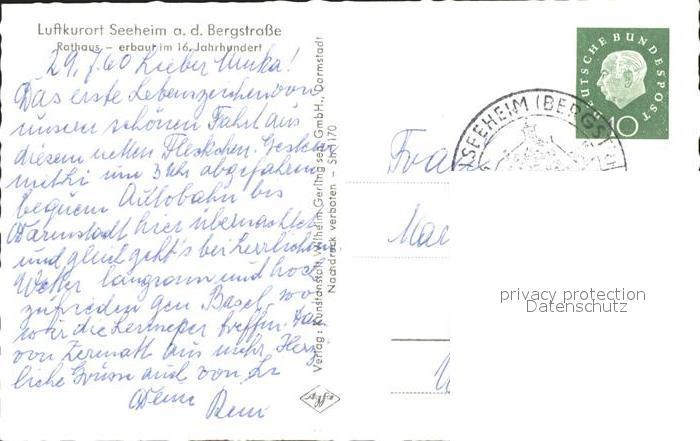 Luftkurort Seeheim a. d. Bergstraße
Rathaus – erbaut im 16. Jahrhundert
29. 7. 60 Lieber
Das erste Lebenszeichen von
unserer schönen Fahrt aus
diesem netten Fleckchen. Gestern
um 3 Uhr abgefahren
bequem Autobahn bis
Darmstadt hier übernachtet
und gleich geht's bei herrlichem
Wetter langsam und hoch
zufrieden gen Basel, wo
wir die Lenneper treffen. Dann
von Zermatt aus mehr. Herz
liche Grüsse auch von
Deine
Verlag: Kunstanstalt Wilhelm Gerling sen. GmbH., Darmstadt
Nachdruck verboten –
Agfa
DEUTSCHE BUNDESPOST
10
SEEHEIM (BERGSTR
privacy protection
Datenschutz